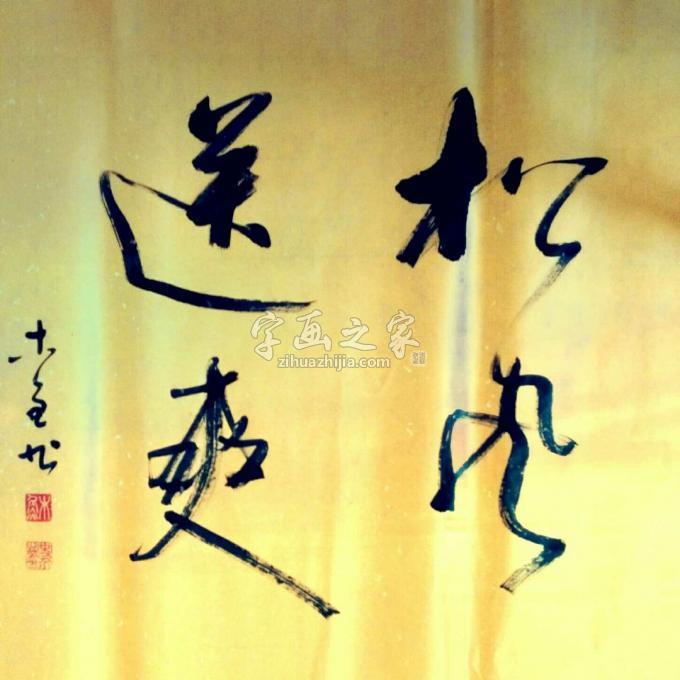 松风
送爽
字画之家
zihuazhijia.com